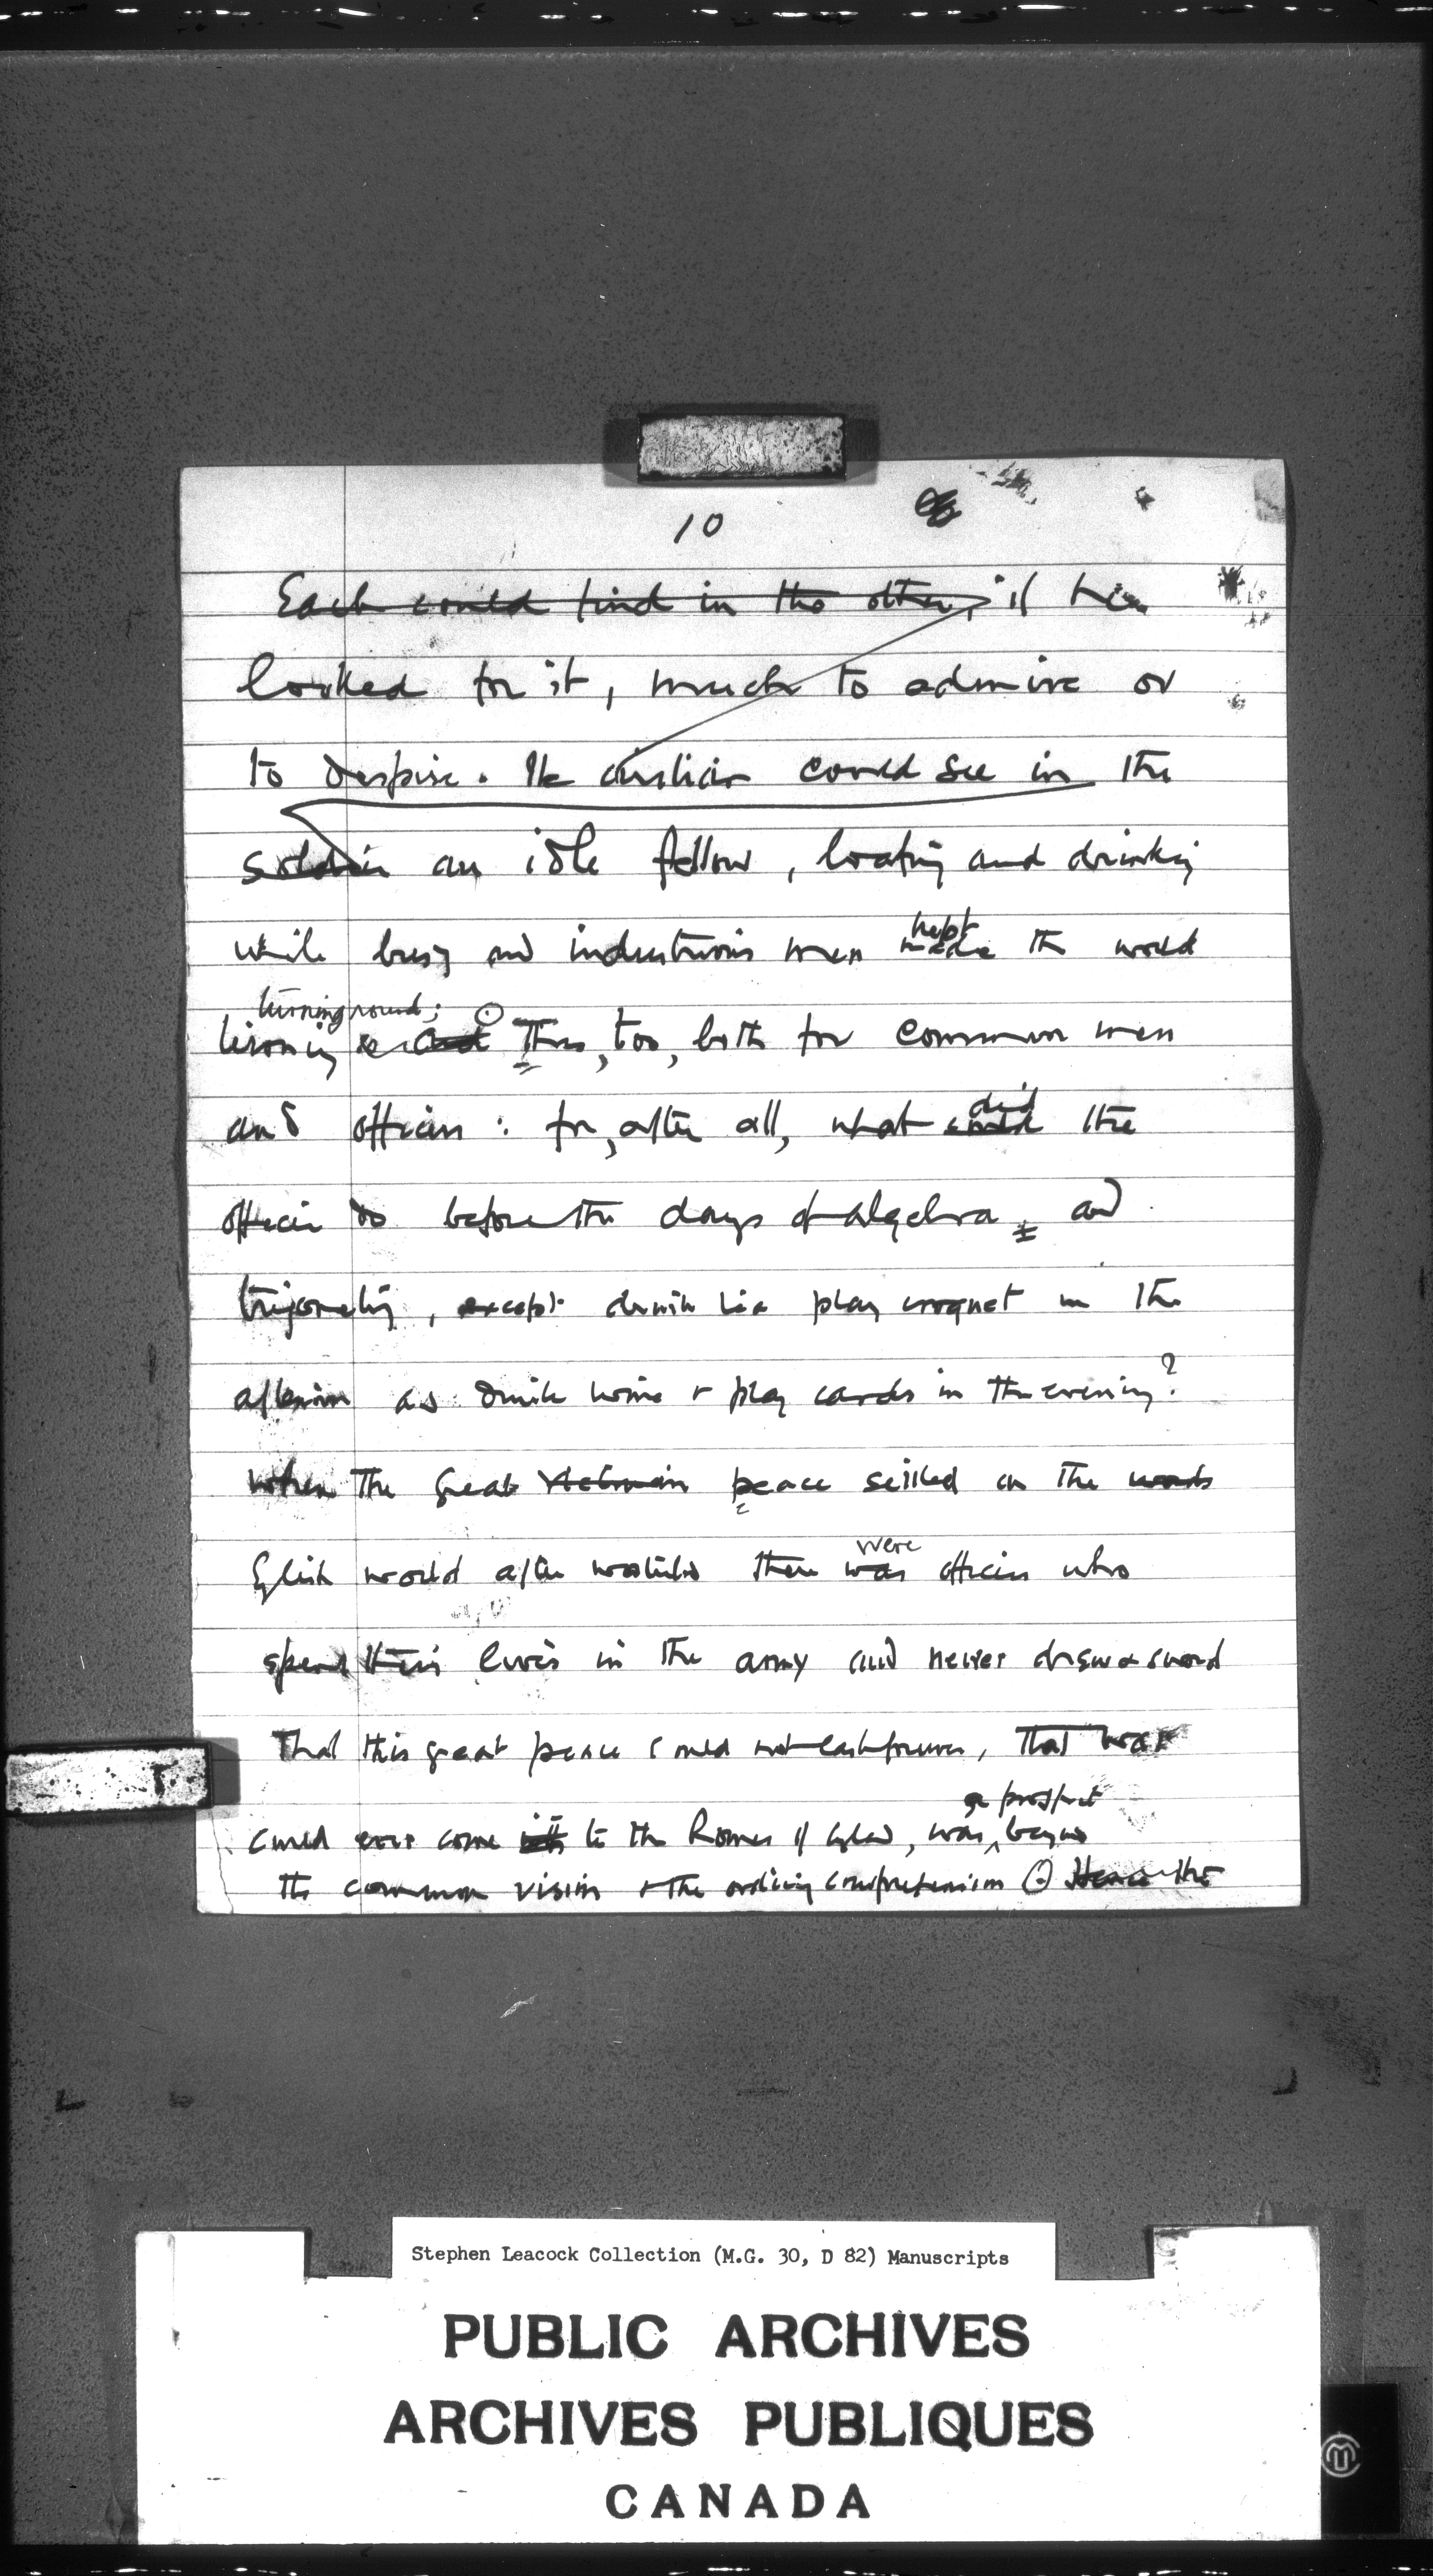 10
Each could find in the other, if he
looked for it, much to admire or
to despise. The civilian could see in the
soldier an idle fellow, loafing and drinking
while busy and industrious men made kept the world
turning round;
and This, too, both for common men
and officers: for, after all, what could did the
officer do before the days of algebra and
trigonometry, except play croquet in the
afternoon and drink wine & play cards in the evening?
When The Great Victorian peace settled on the
English world after Waterloo there was were officers who
spend their lives in the army and never drew a sword
That this great peace could not last forever, That war
could ever come to the Homes of England, was a prospect beyond
the common vision & the ordinary comprehension Hence the
Stephen Leacock Collection (M.G. 30, D 82) Manuscripts
PUBLIC ARCHIVES
ARCHIVES PUBLIQUES
CANADA